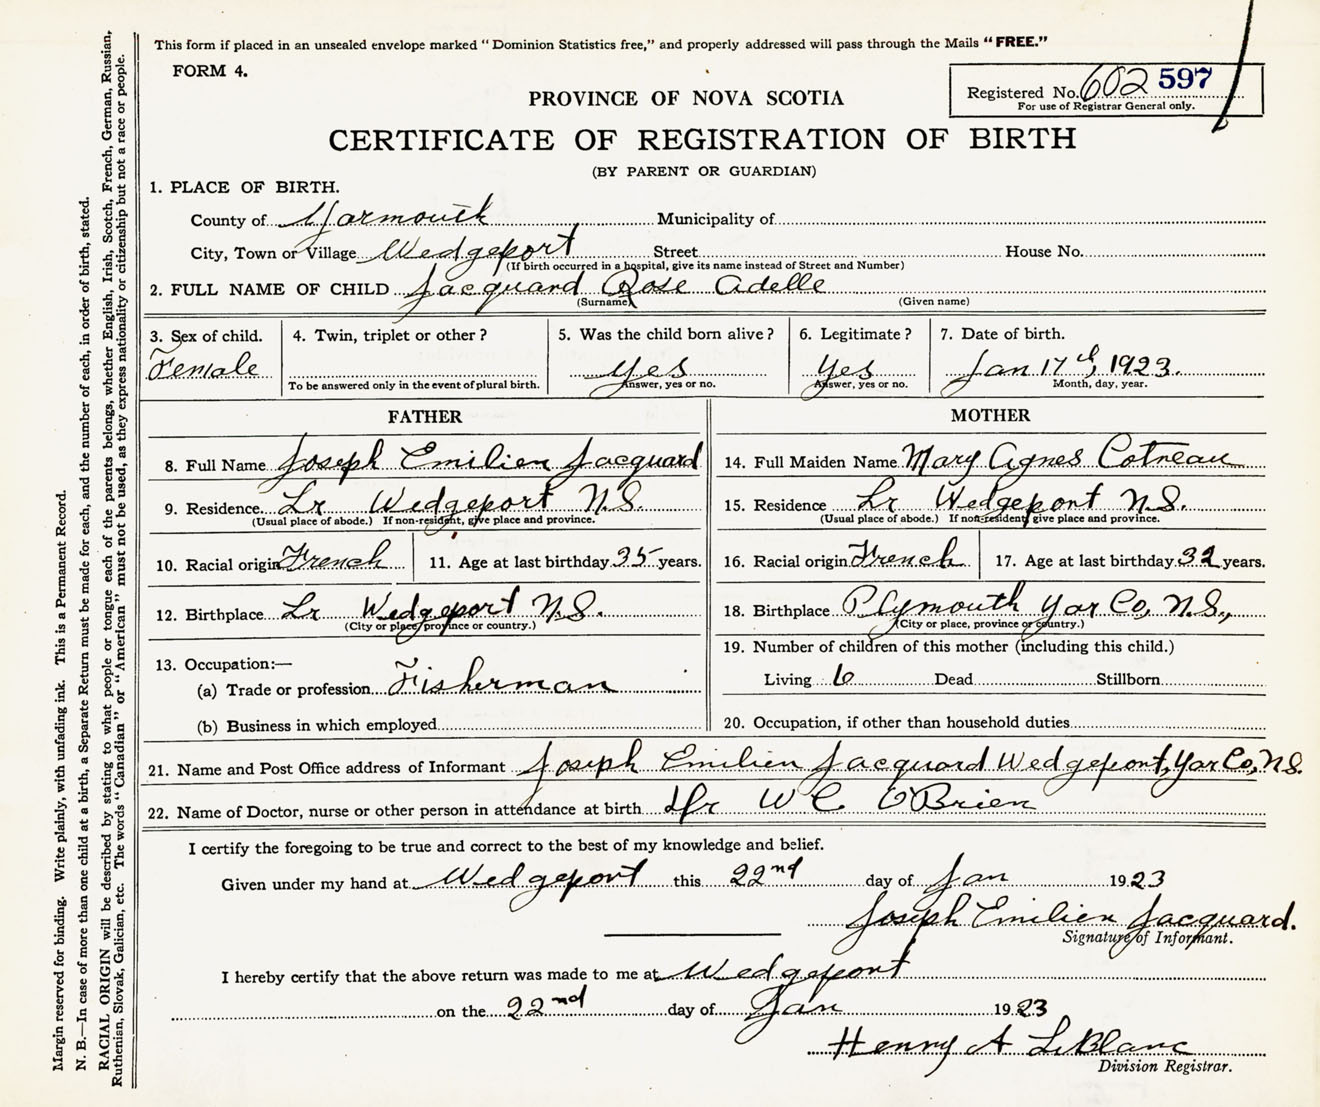 This form if placed in an unsealed envelope marked "Dominion Statistics free," and properly addressed will pass through the Mails "FREE."
FORM 4.
Registered No. 602 597
For use of Registrar General only.
PROVINCE OF NOVA SCOTIA
CERTIFICATE OF REGISTRATION OF BIRTH
(BY PARENT OR GUARDIAN)
1. PLACE OF BIRTH.
County of Yarmouth Municipality of
City, Town or Village Wedgeport Street House No.
(If birth occurred in a hospital, give its name instead of Street and Number)
2. FULL NAME OF CHILD Jacquard Rose Adelle
(Surname) (Given name)
3. Sex of child. 4. Twin, triplet or other? 5. Was the child born alive? 6. Legitimate? 7. Date of birth.
Female Yes Yes Jan 17th, 1923.
To be answered only in the event of plural birth. Answer, yes or no. Answer, yes or no. Month, day, year.
FATHER MOTHER
8. Full Name Joseph Emilien Jacquard 14. Full Maiden Name Mary Agnes Cotreau
9. Residence. Lr Wedgeport N.S. 15. Residence Lr Wedgeport N.S.
(Usual place of abode.) If non-resident, give place and province. (Usual place of abode.) If non-resident, give place and province.
10. Racial origin French 11. Age at last birthday 35 years. 16. Racial origin French 17. Age at last birthday 32 years.
12. Birthplace Lr Wedgeport N.S. 18. Birthplace Plymouth Yar Co, N.S.,
(City or place, province or country.) (City or place, province or country.)
13. Occupation:— 19. Number of children of this mother (including this child.)
(a) Trade or profession Fisherman Living 6 Dead Stillborn
(b) Business in which employed 20. Occupation, if other than household duties
21. Name and Post Office address of Informant Joseph Emilien Jacquard Wedgeport, Yar Co, N.S.
22. Name of Doctor, nurse or other person in attendance at birth Dr W C O'Brien
I certify the foregoing to be true and correct to the best of my knowledge and belief.
Given under my hand at Wedgeport this 22nd day of Jan 1923
Joseph Emilien Jacquard.
Signature of Informant.
I hereby certify that the above return was made to me at Wedgeport
on the 22nd day of Jan 1923
Henry A LeBlanc
Division Registrar.
Margin reserved for binding. Write plainly, with unfading ink. This is a Permanent Record.
N. B.—In case of more than one child at a birth, a Separate Return must be made for each, and the number of each, in order of birth, stated.
RACIAL ORIGIN will be described by stating to what people or tongue each of the parents belongs, whether English, Irish, Scotch, French, German, Russian,
Ruthenian, Slovak, Galician, etc. The words "Canadian" or "American" must not be used, as they express nationality or citizenship but not a race or people.